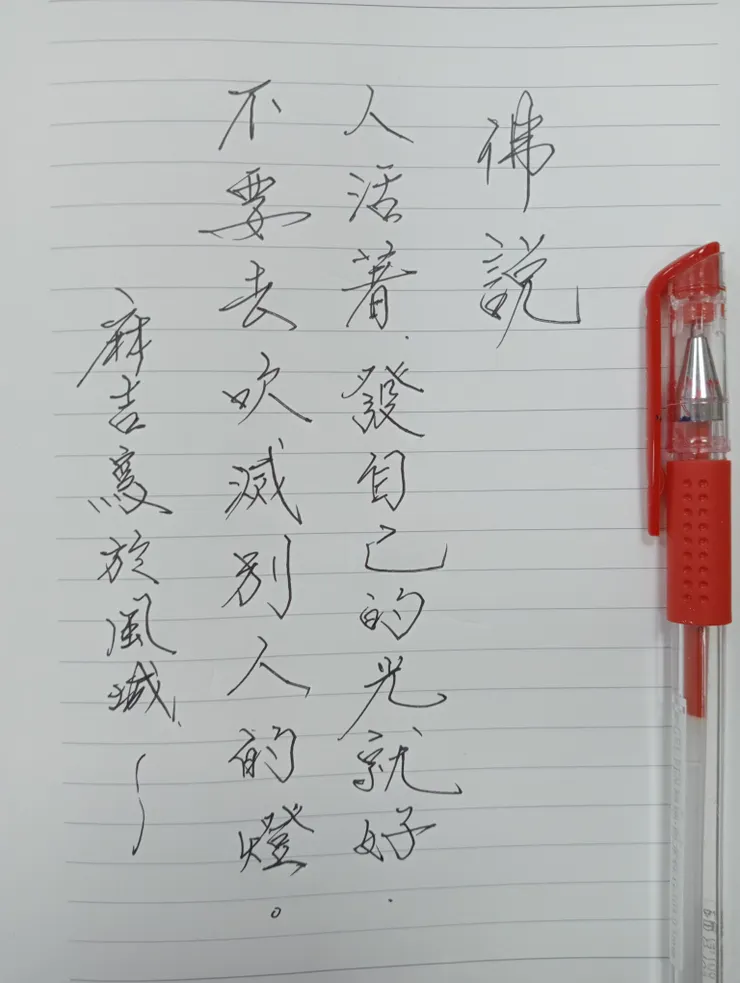 佛說
人活著.發自己的光就好.
不要去吹滅別人的燈。
麻吉寫於風城～